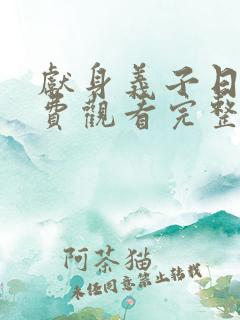 獻身義子日
費觀看完整
阿茶猫
未经同意禁止转载